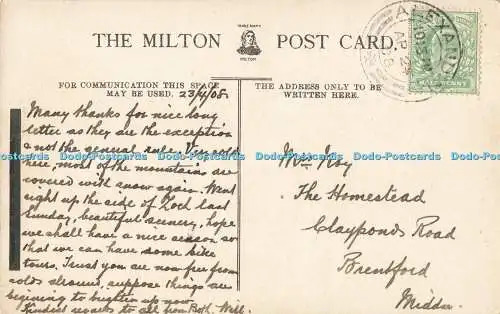 THE MILTON POST CARD.
TRADE MARK
MILTON
ALEXAND
AP 24
08
HALFPENNY
FOR COMMUNICATION THIS SPACE
MAY BE USED.
THE ADDRESS ONLY TO BE
WRITTEN HERE.
23/4/08.
Many thanks for nice long
letter as they are the exception
& not the general rule. Very cold
here, most of the mountains are
covered with snow again. Went
right up the side of Loch last
Sunday, beautiful scenery, hope
we shall have a nice season so
that we can have some bike
tours. Trust you are now free from
colds around, suppose things are
beginning to brighten up now
Kindest regards to all from Both. Will.
Mrs
The Homestead
Clayponds Road
Brentford
Middx
Dodo-Postcards Dodo-Postcards Dodo-Postcards Dodo-Postcards Dodo-Postcards